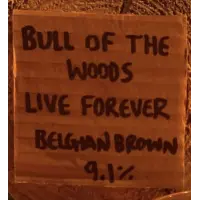 BULL OF THE
WOODS
LIVE FOREVER
BELGIAN BROWN
9.1%